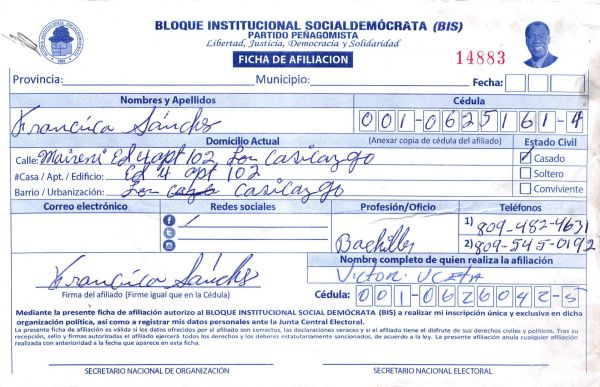 BLOQUE INSTITUCIONAL SOCIALDEMÓCRATA (BIS)
PARTIDO PEÑAGOMISTA
Libertad, Justicia, Democracia y Solidaridad
FICHA DE AFILIACION
14883
Provincia: Municipio: Fecha:
Nombres y Apellidos Cédula
Francisca Sánchz 001-0625161-4
Domicilio Actual (Anexar copia de cédula del afiliado) Estado Civil
Calle: Maireni Ed 4 apt 102 Los Casicazgo Casado
#Casa / Apt. / Edificio: Ed 4 apt 102 Soltero
Barrio / Urbanización: Los Casicazgo Conviviente
Correo electrónico Redes sociales Profesión/Oficio Teléfonos
1) 809-482-4631
Bachiller 2) 809-545-0192
Nombre completo de quien realiza la afiliación
Francisca Sánchz Victor Uceta
Firma del afiliado (Firme igual que en la Cédula) Cédula: 001-0626042-5
Mediante la presente ficha de afiliación autorizo al BLOQUE INSTITUCIONAL SOCIAL DEMÓCRATA (BIS) a realizar mi inscripción única y exclusiva en dicha
organización política, así como a registrar mis datos personales ante la Junta Central Electoral.
La presente ficha de afiliación es válida si los datos ofrecidos por el afiliado son correctos, las declaraciones veraces y si el afiliado tiene el disfrute de sus derechos civiles y políticos. Tras su
recepción, sello y firmas autorizadas el afiliado ejercerá todos los derechos y los deberes estatutariamente sancionados, de acuerdo a la ley. La presente afiliación anula cualquier afiliación
realizada con anterioridad a la fecha que aparece en esta ficha.
SECRETARIO NACIONAL DE ORGANIZACIÓN SECRETARIO NACIONAL ELECTORAL